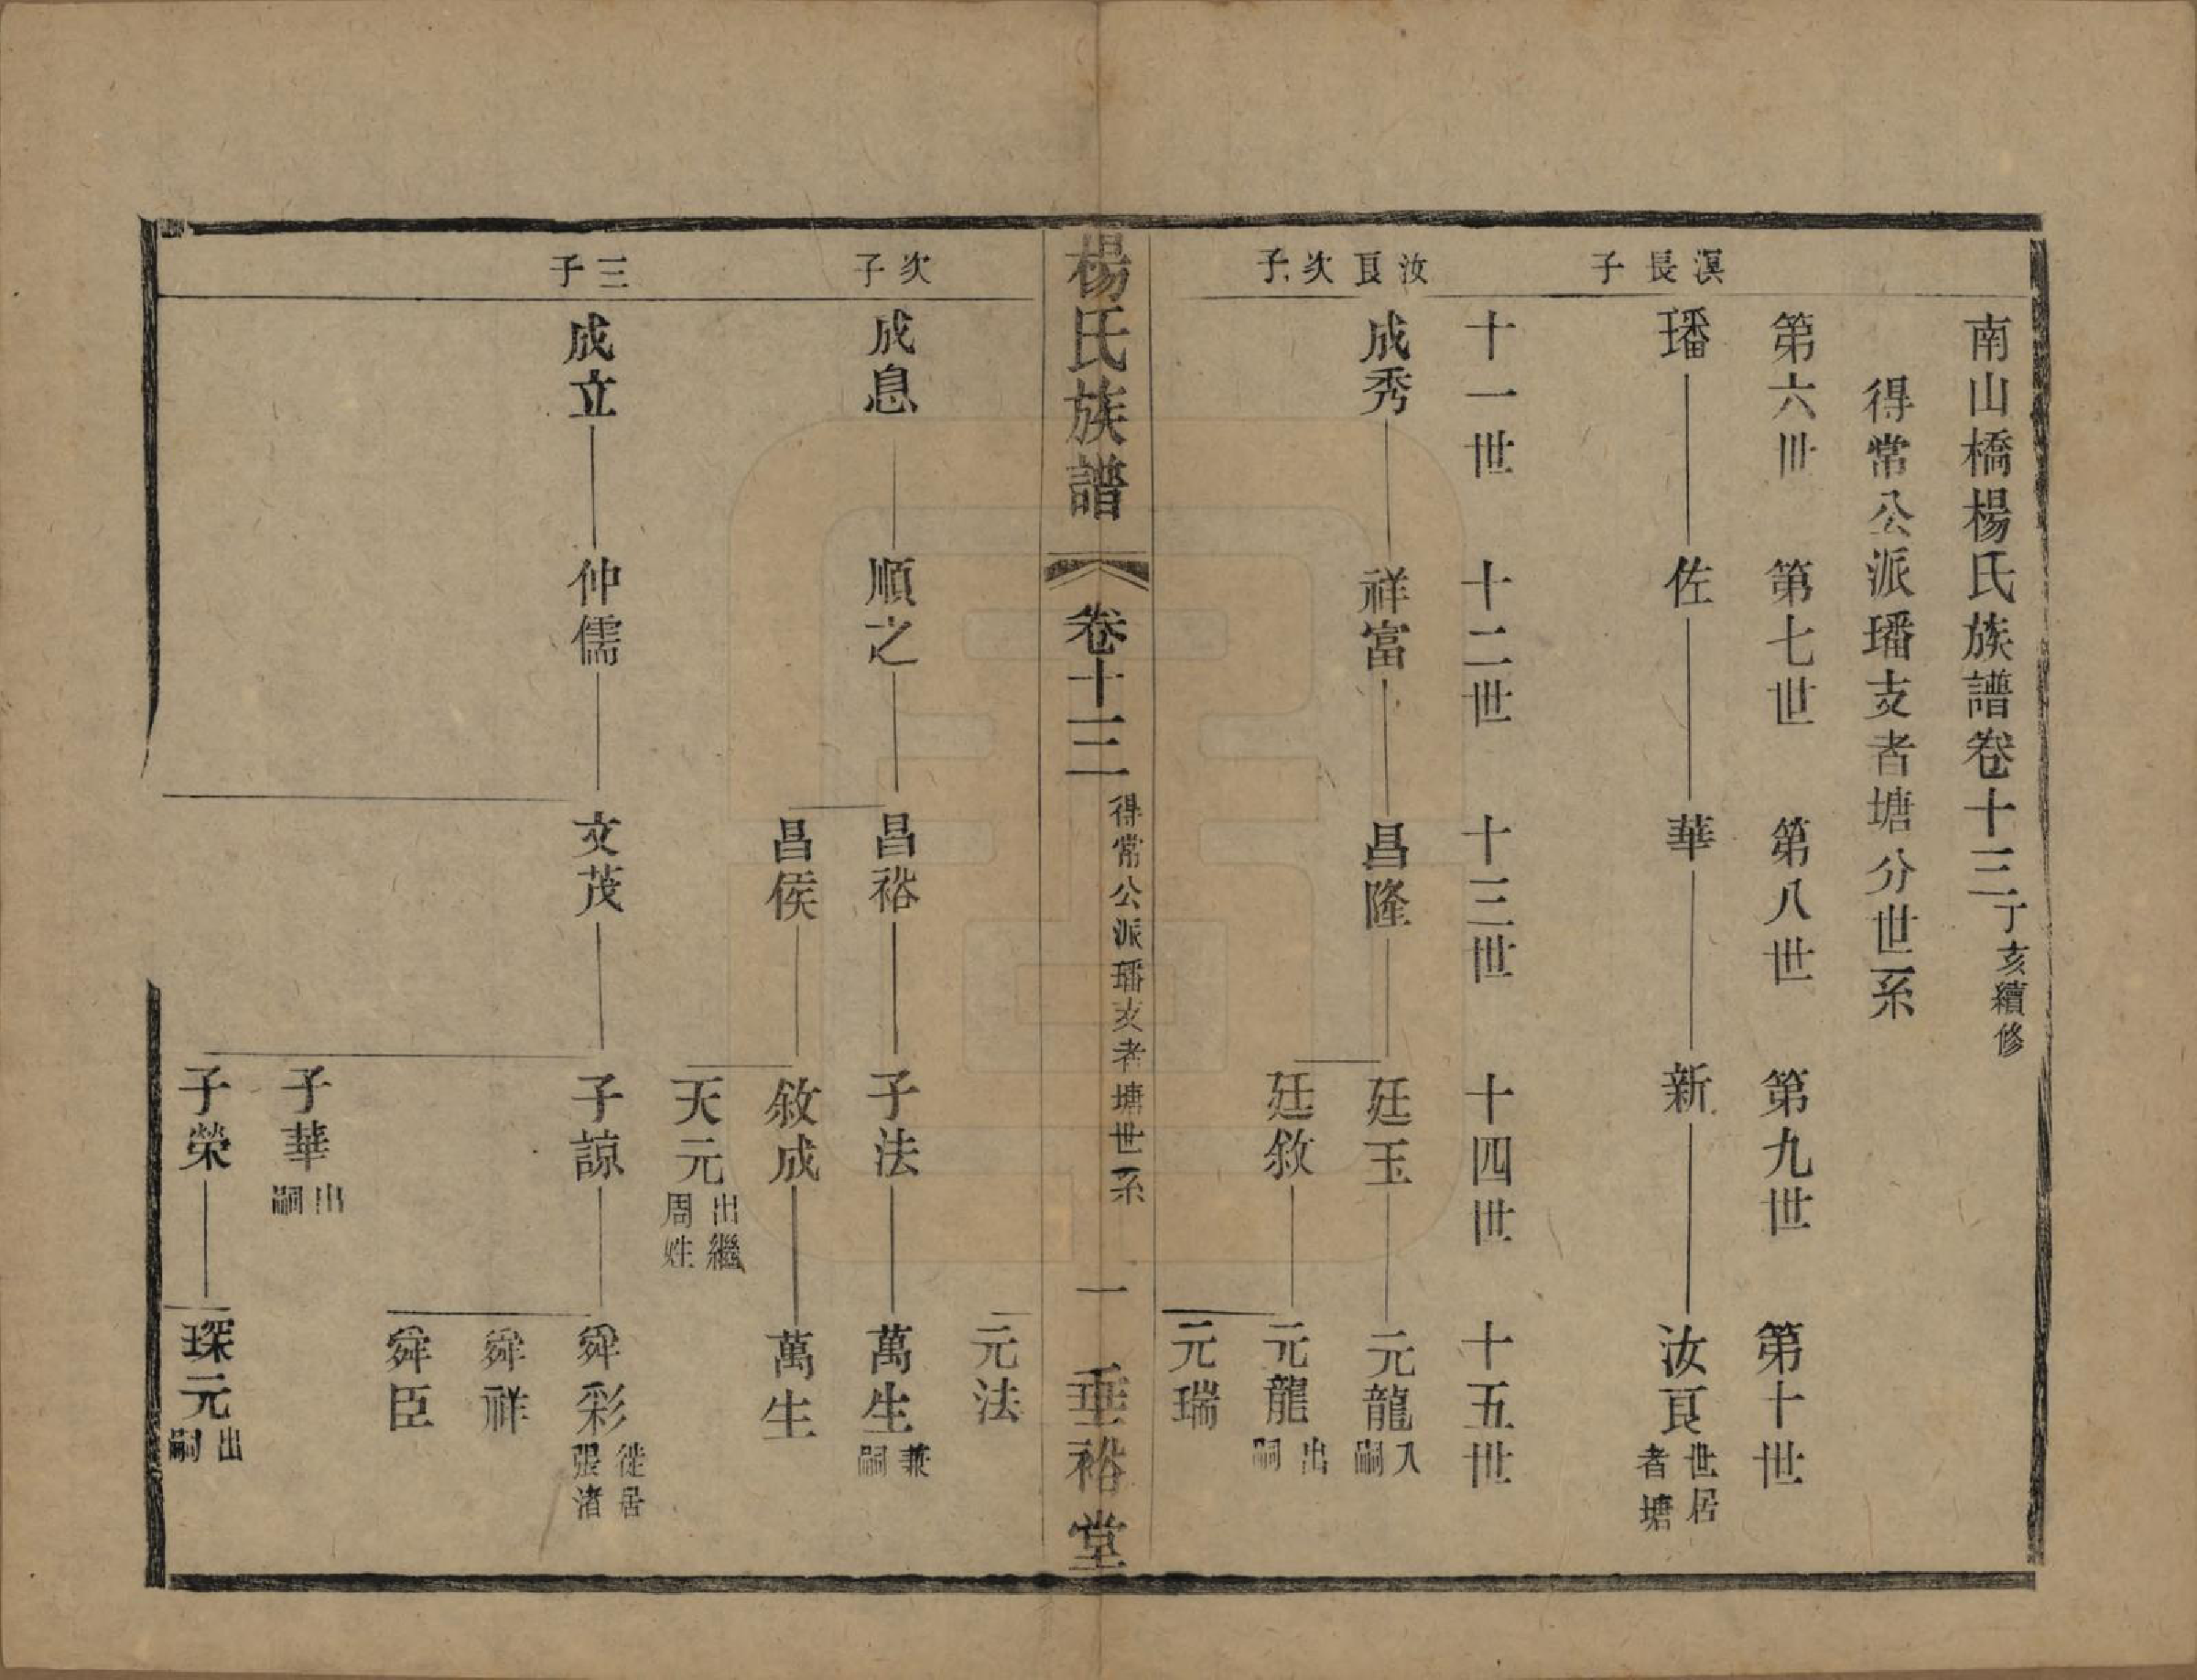 南山橋楊氏族譜卷十三丁亥續修
得常公派璠支者塘分世系
第六世 第七世 第八世 第九世 第十世
溟長子
璠 佐 華 新 汝良世居者塘
十一世 十二世 十三世 十四世 十五世
汝良次子
成秀 祥富 昌隆 廷玉 元龍入嗣
廷敘 元龍出嗣
元瑞
楊氏族譜 卷十三 得常公派璠支者塘世系 一 垂裕堂
元法
次子
成息 順之 昌裕 子法 萬生兼嗣
昌侯 敘成 萬生
天元出繼周姓
三子
成立 仲儒 文茂 子諒 舜彩徙居張渚
舜祥
舜臣
子華出嗣
子榮 琛元出嗣